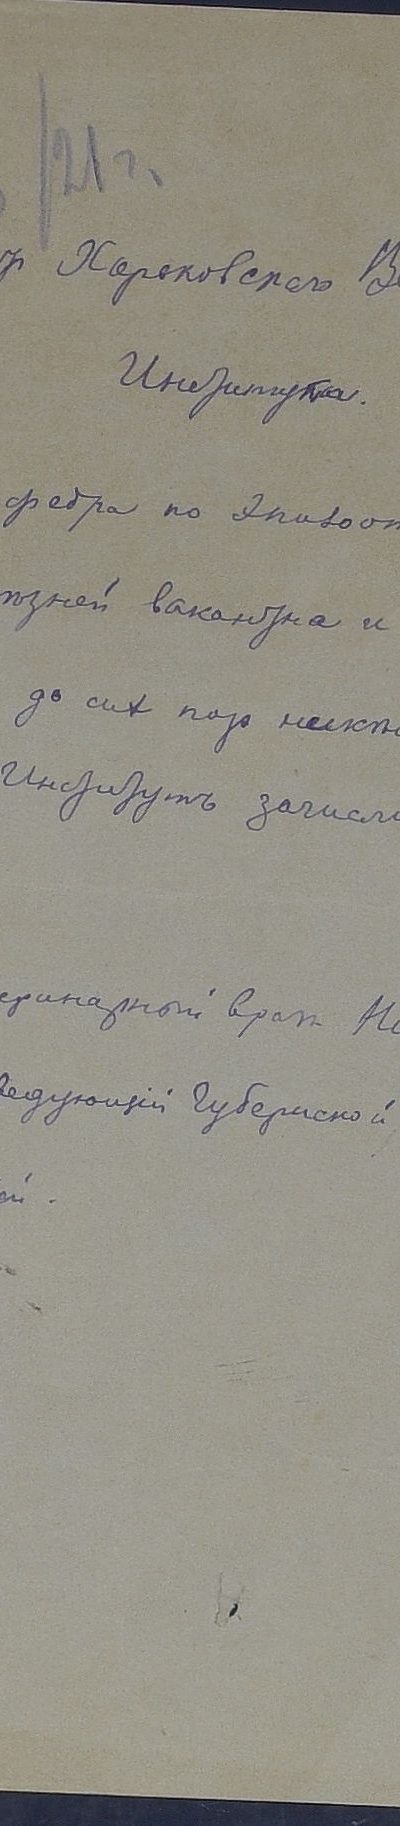 /21 г.
Харьковскаго Ве
Института.
федра по Эпизоот
вакантна и
до сих пор
Институтъ зачисли
еринарный врач Ни
ведующий Губернской
ой.